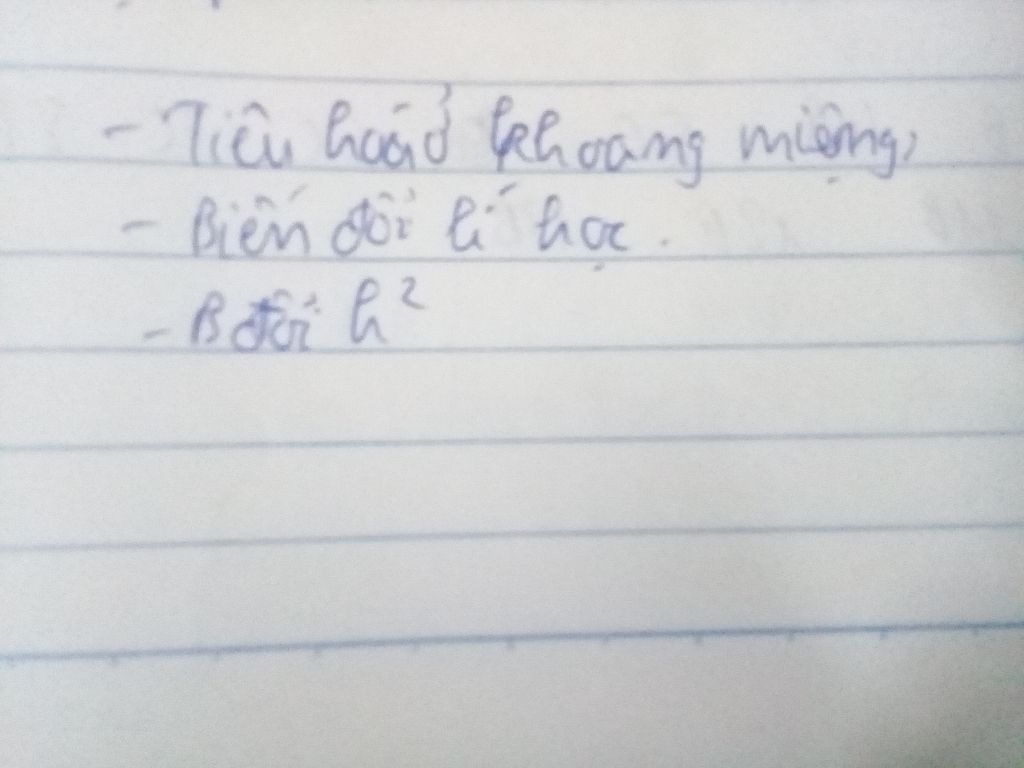 - Tiêu hoá ở khoang miệng,
- Biến đổi lí học.
- B đổi h²